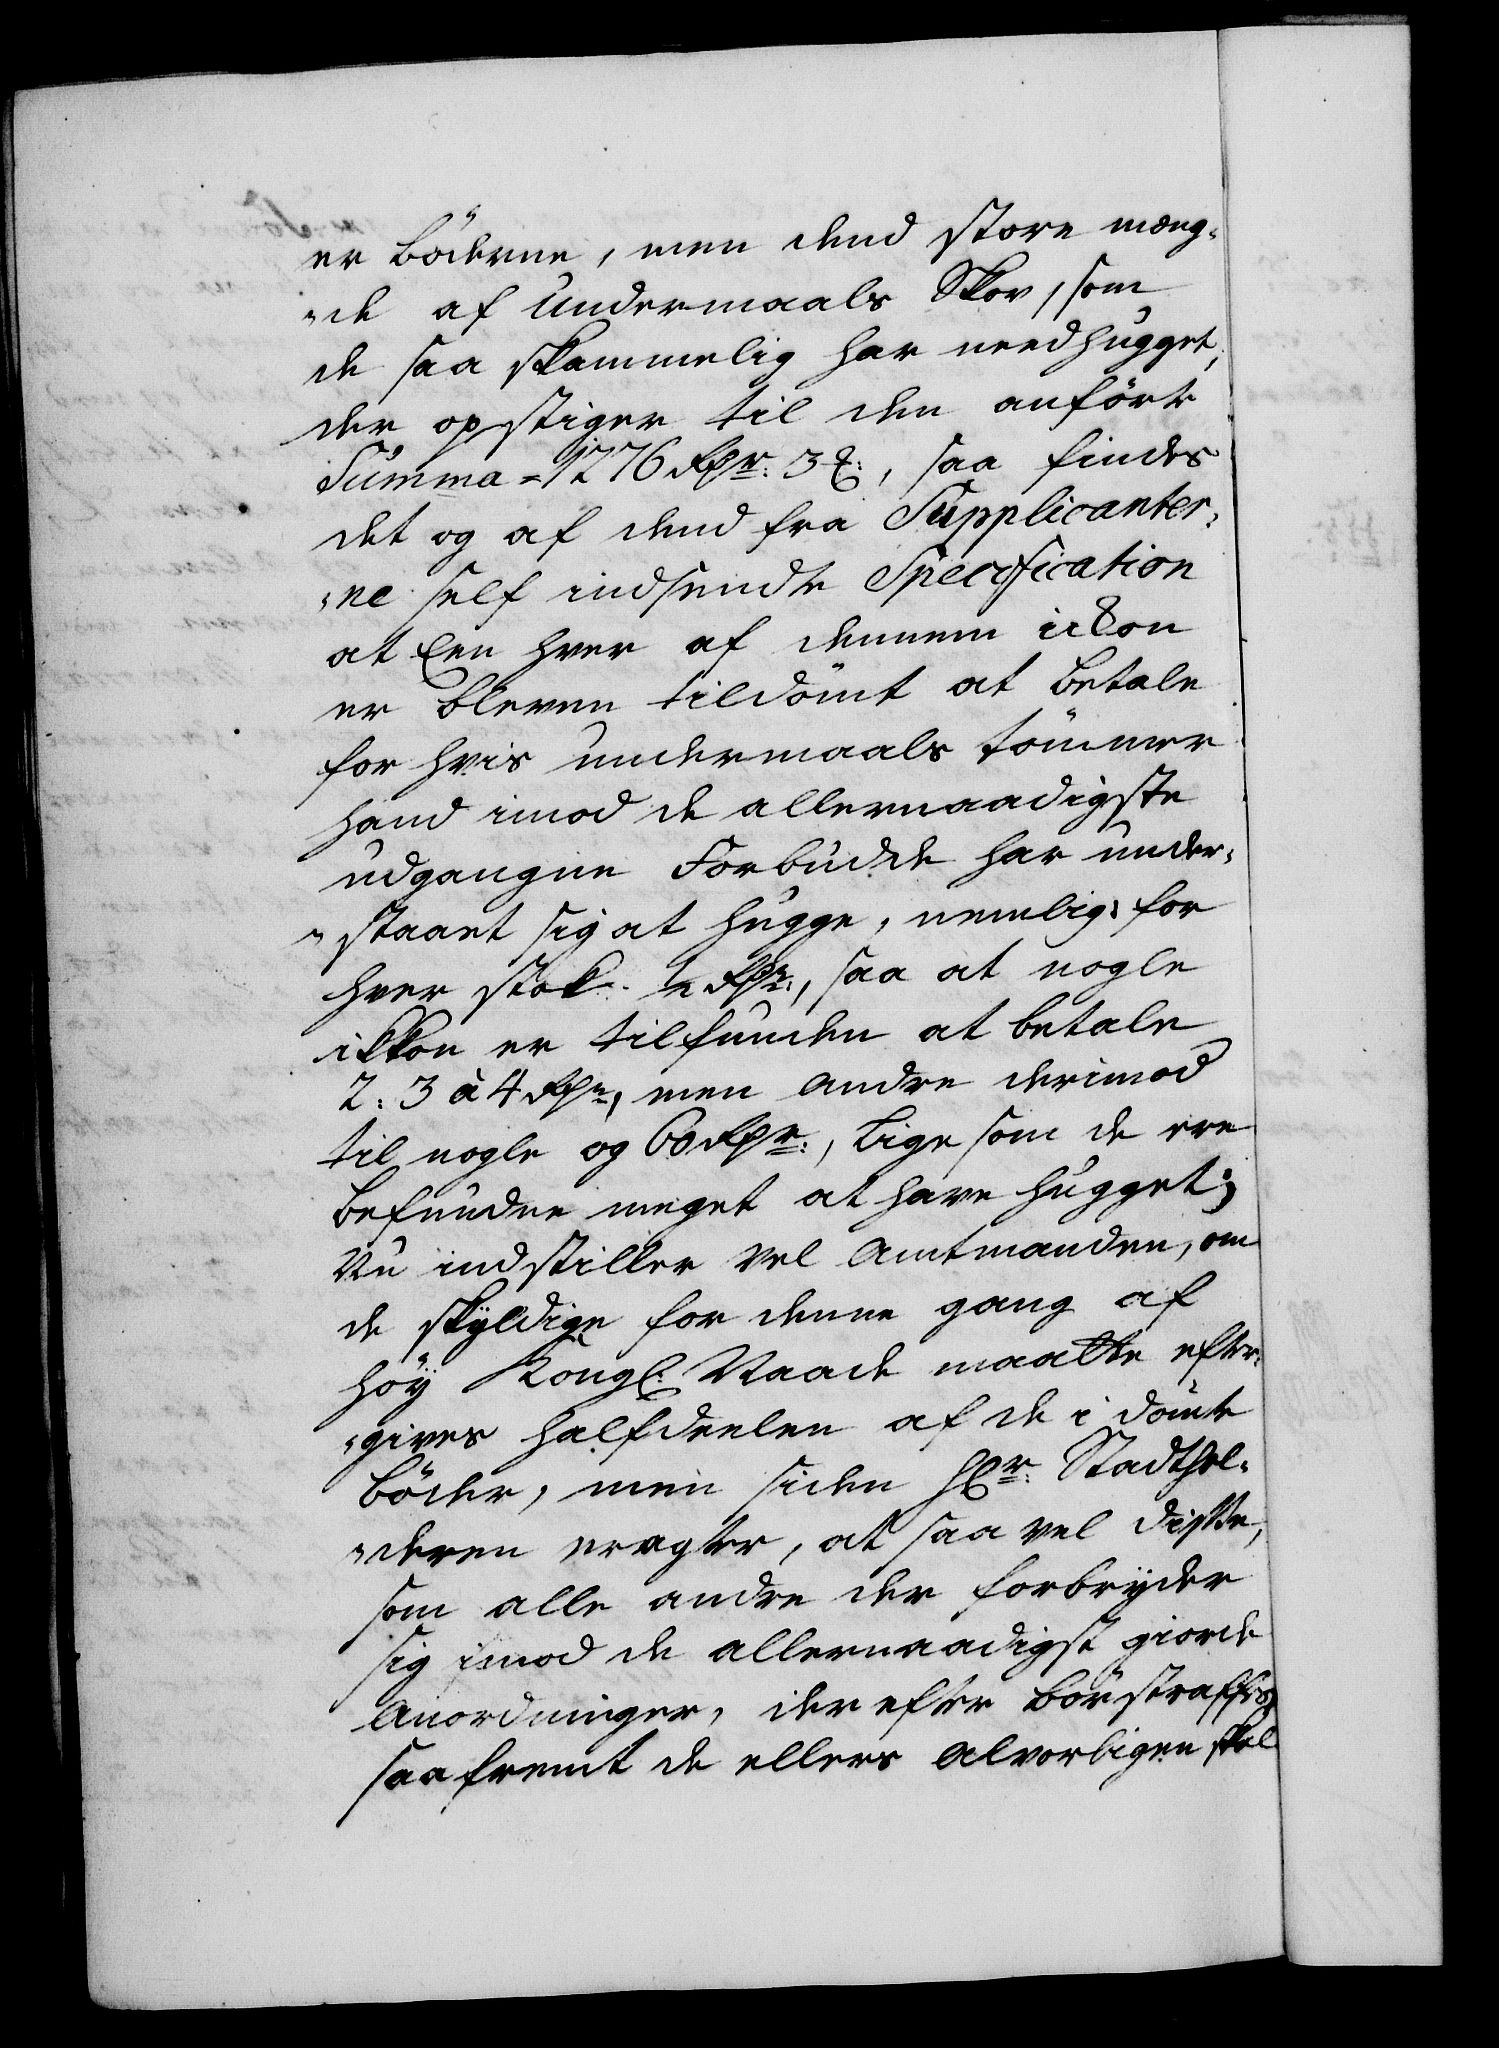 er böderne, men dend store mæng-
-de af Undermaals Skov, som
de saa skammelig har needhugget,
der opstiger til den anförte
Summa = 1276 Rdr: 3 ß:, saa findes
det og af dend fra Supplicanter-
-ne self indsendte Specification
at Een hver af dennem ickon
er bleven tildömt at betale
for hvis undermaals tömmer
hand imod de allernaadigste
udgangne Forbudde har under-
-staaet sig at hugge, nemlig: for
hver stok ½ Rdr:, saa at nogle
ikkon er tilfunden at betale
2: 3 à 4 Rdr, men andre derimod
til nogle og 60 Rdr:, lige som de ere
befundne meget at have hugget;
Nu indstiller vel Amtmanden, om
de skyldige for denne gang af
höy Kongl: Naade maatte efter-
-gives halfdeelen af de i dömte
böder, men siden Hr: Stadthol-
-deren eragter, at saa vel disse,
som alle andre der forbryder
sig imod de allernaadigst giorde
Anordninger, der efter bör straffes,
saa fremt de ellers alvorligen skal